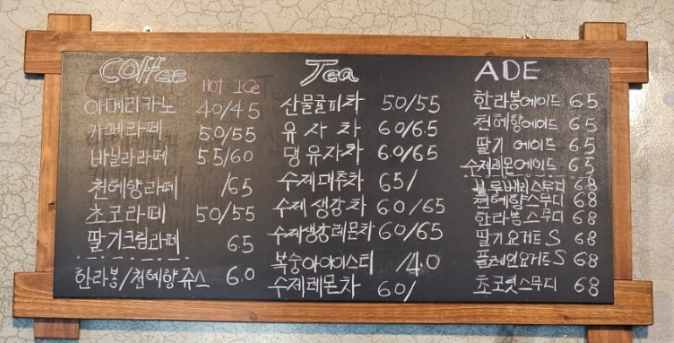 Coffee
HOT ICe
아메리카노 40/45
카페라떼 50/55
바닐라라떼 55/60
천혜향라떼 /65
초코라떼 50/55
딸기크림라떼 65
한라봉/천혜향쥬스 6.0
Tea
산물귤피차 50/55
유자차 60/65
댕유자차 6.0/65
수제대추차 65/
수제생강차 60/65
수제생강레몬차 60/65
복숭아아이스티 /4.0
수제레몬차 60/
ADE
한라봉에이드 65
천혜향에이드 65
딸기 에이드 65
수제레몬에이드 65
블루베리스무디 68
천혜향스무디 68
한라봉스무디 68
딸기요거트S 68
플레인요거트S 68
초코렛스무디 68